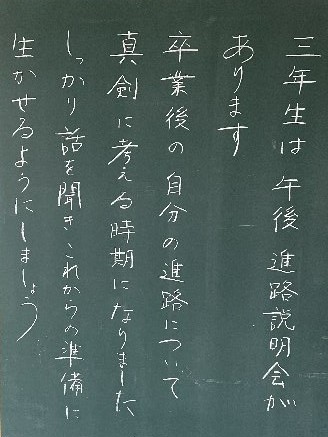 三年生は 午後 進路説明会が
あります
卒業後の自分の進路について
真剣に考える時期になりました
しっかり話を聞きこれからの準備に
生かせるようにしましょう